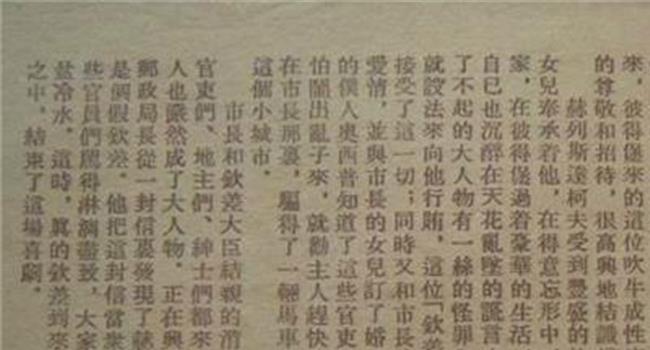 來，彼得堡來的這位吹牛成性
的尊敬和招待，很高興地結識
赫列斯達柯夫受到豐盛的
女兒奉承着他，在得意忘形中
家，在彼得堡過着豪華的生活
自己也沉醉在天花亂墜的謊言
了不起的大人物有一絲的怪罪
就設法來向他行賄，這位「欽差
接受了這一切；同時又和市長
愛情，並與市長的女兒訂了婚
的僕人奧西普知道了這些官吏
怕鬧出亂子來，就勸主人趕快
在市長那裏，騙得了一輛馬車
這個小城市。
市長和欽差大臣結親的消
官吏們、地主們、紳士們都來
人也儼然成了大人物。正在興
郵政局長從一封信裏發現了赫
是個假欽差。他把這封信當衆
些官員們罵得淋漓盡致，大家
盆冷水，這時，眞的欽差到來
之中，結束了這場喜劇。